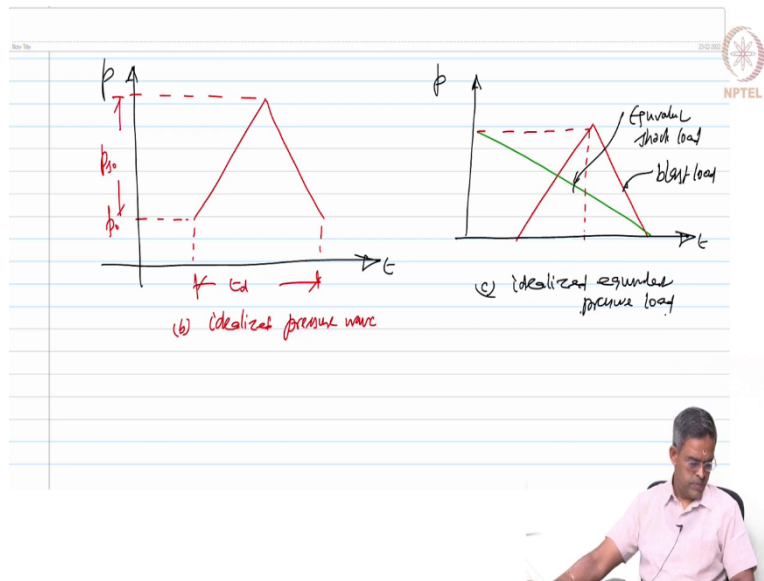 Note Title
23-02-2022
NPTEL
p
Pso
po
t
td
(b) idealized pressure wave
p
Equivalent
shock load
blast load
t
(c) idealized equivalent
pressure load